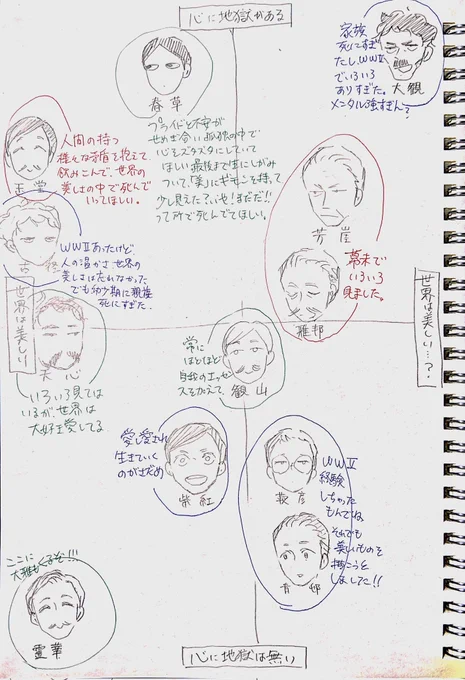 心に地獄がある
家族
死にすぎ
たし、WWⅡ
でいろいろ
ありすぎた。
メンタル強すぎん?
大観
春草
プライドと不安が
せめぎ合い孤独の中で
心をズタズタにしていて
ほしい。最後まで生にしがみ
ついて、「美」にギモンを持って
少し見えた?いや!まだだ!!
って所で死んでてほしい。
人間の持つ
様々な矛盾を抱えて、
飲みこんで、世界の
美しさの中で死んで
いってほしい。
玉堂
芳崖
幕末で
いろいろ
見ました。
雅邦
WWⅡあったけど、
人の温かさ、世界の
美しさは忘れなかった
でも幼少期に親族
死にすぎた.
世界は美しい
世界は美しい…?
天心
いろいろ見ては
いるが世界は
大好き愛してる
常に
ほどほど
自我のエッセ
スをかえて、
観山
愛し愛され
生きていく
のがさだめ
紫紅
WWⅡ
経験
しちゃった
もんでね、
それでも
美しいものを
描こうと
しました!!
靫彦
青邨
ここに
大雅もくるぞ!!!
霊華
心に地獄は無い